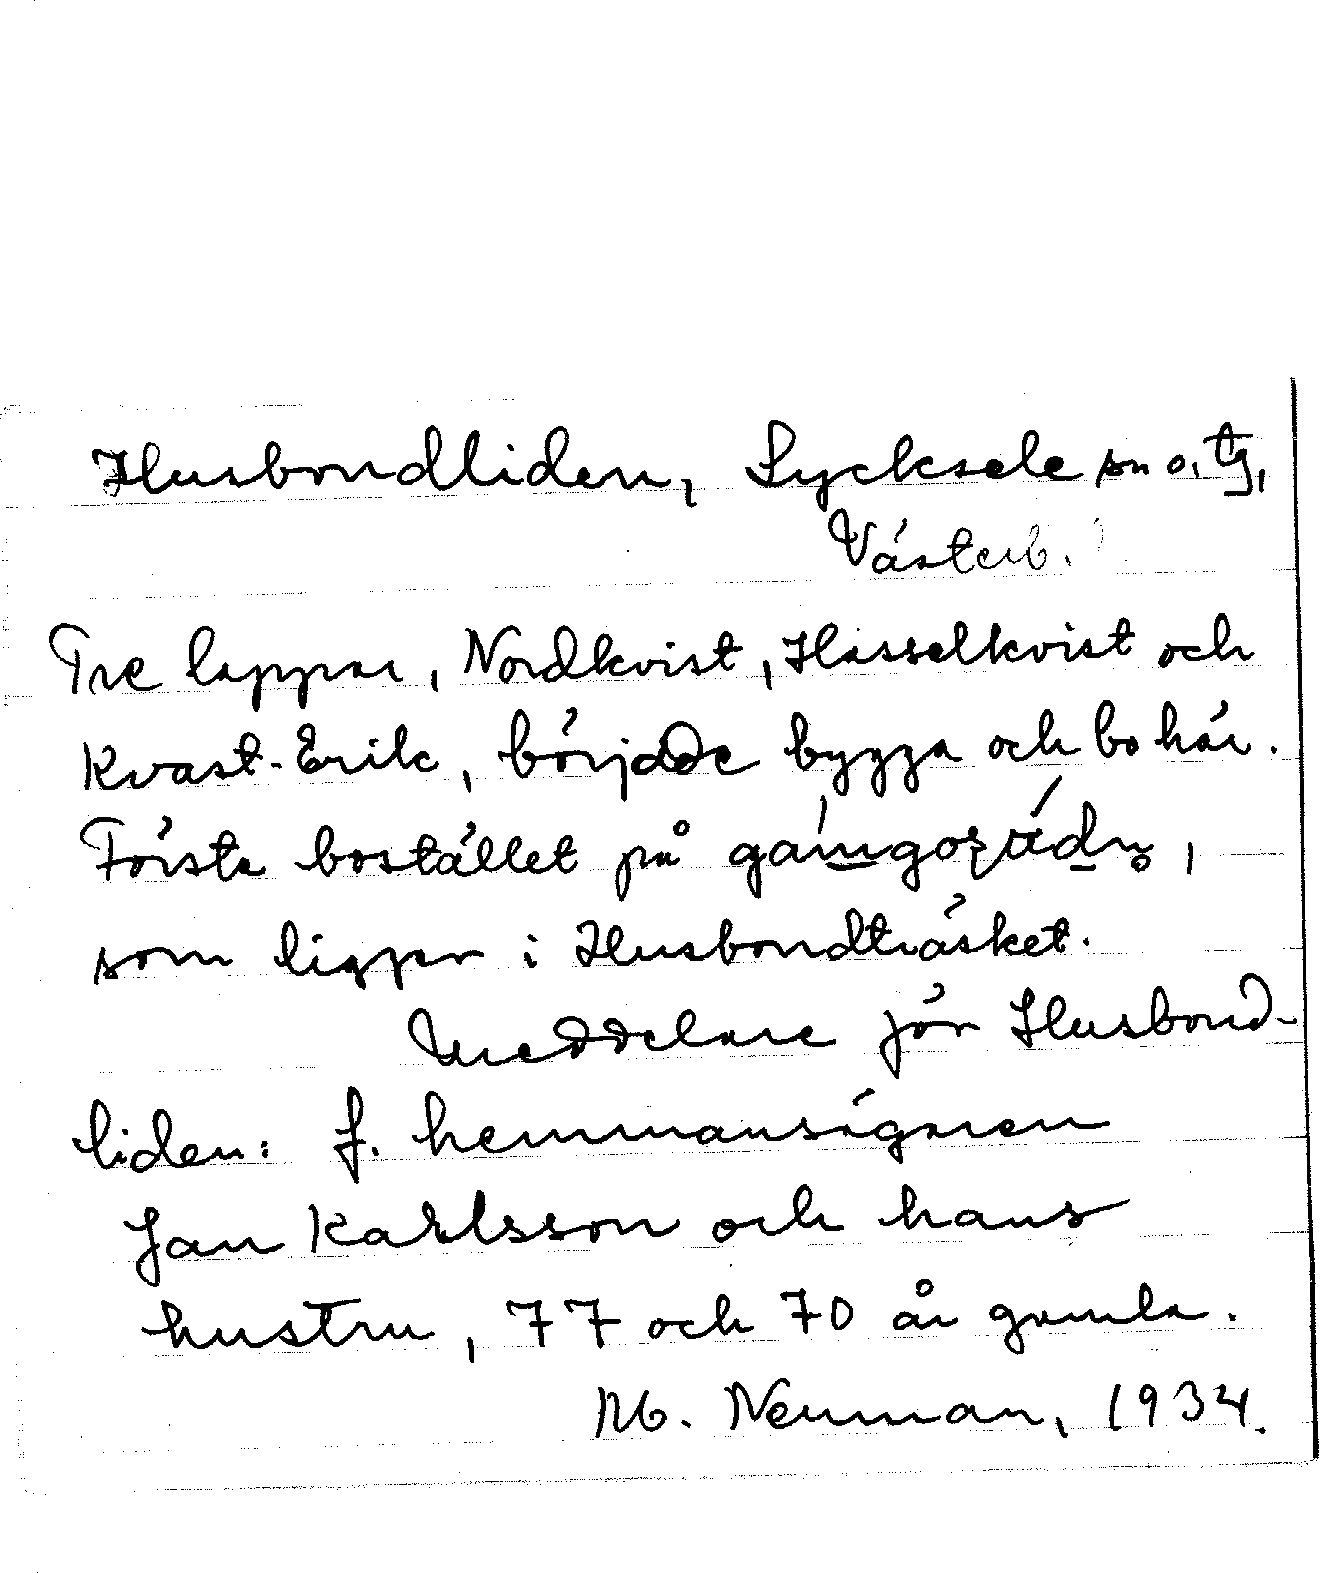 Husbondliden, Lycksele sn o. tg,
Västerb.
Tre lappar, Nordkvist, Hasselkvist och
Kvast-Erik, började bygga och bo här.
Första bostället på
som ligger i Husbondträsket.
Meddelare för Husbond-
liden: f. hemmansägaren
Jan Karlsson och hans
hustru, 77 och 70 år gamla.
M. Neuman, 1934.